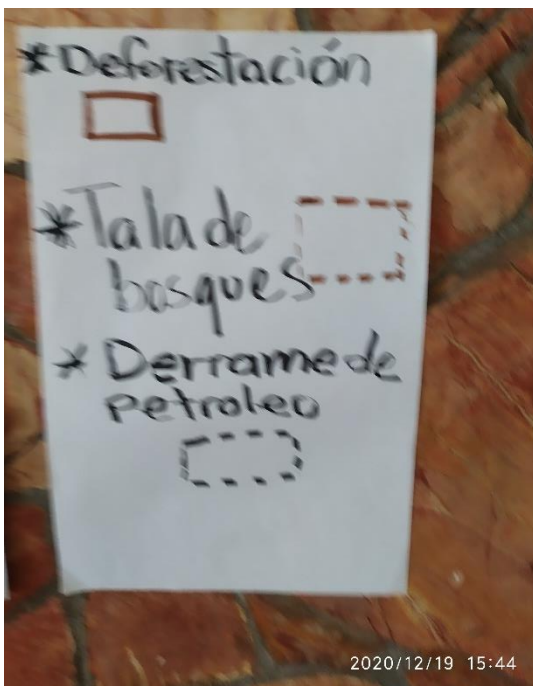 *Deforestación
*Tala de
bosques
* Derrame de
petroleo
2020/12/19 15:44